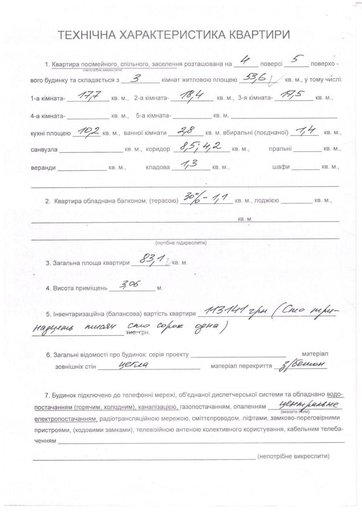 ТЕХНІЧНА ХАРАКТЕРИСТИКА КВАРТИРИ
1. Квартира посімейного, спільного, заселення розташована на 4 поверсі 5 поверхо-
вого будинку та складається з 3 кімнат житловою площею 53,6 кв. м., у тому числі:
1-а кімната- 17,7 кв. м., 2-а кімната- 18,4 кв. м., 3-я кімната- 17,5 кв. м.,
4-а кімната- кв. м., 5-а кімната- кв. м.
кухні площею 10,2 кв. м., ванної кімнати 2,8 кв. м. вбиральні (поєднаної) 1,4 кв. м.
санвузла кв. м., коридор 8,5; 4,2 кв. м., пральні кв. м.,
веранди кв. м., кладова 1,3 кв. м., шафи кв. м.,
2. Квартира обладнана балконом, (терасою) 30% - 1,1 кв. м., лоджією кв. м.,
кв. м.
(потрібне підкреслити)
3. Загальна площа квартири 83,1 кв. м.
4. Висота приміщень 3,06 м.
5. Інвентаризаційна (балансова) вартість квартири 113141 грн (Сто три-
надцять тисяч сто сорок одна) тис. грн.
6. Загальні відомості про будинок: серія проекту матеріал
зовнішніх стін цегла матеріал перекриття з/бетон
7. Будинок підключено до телефонні мережі, об'єднаної диспетчерської системи та обладнано водо-
постачанням (горячим, холодним), каналізацією, газопостачанням, опаленням центральне
(вказати яким)
електропостачанням, радіотрансляційною мережею, сміттєпроводом, ліфтами, замково-переговорними
пристроями, (кодовими замками), телевізійною антеною колективного користування, кабельним телеба-
ченням
(непотрібне викреслити)